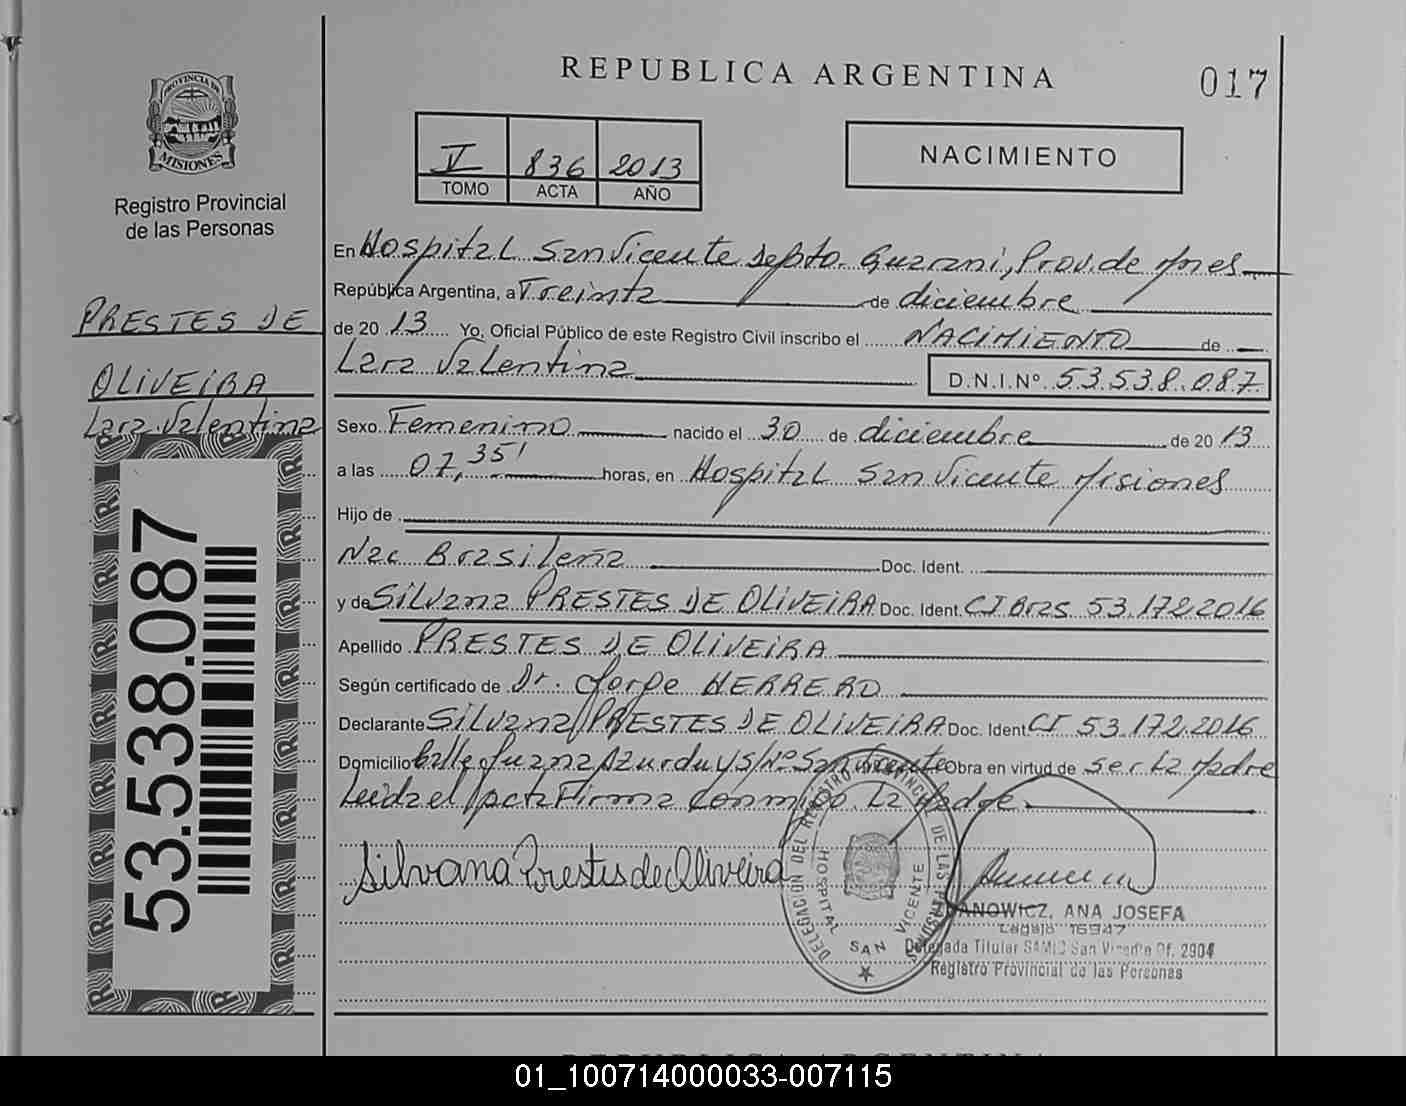 PROVINCIA DE
MISIONES
Registro Provincial
de las Personas
REPUBLICA ARGENTINA
017
V 836 2013
TOMO ACTA AÑO
NACIMIENTO
En Hospital San Vicente Depto. Guarani, Prov. de Mnes
República Argentina, a Treinta de diciembre
de 20 13 Yo, Oficial Público de este Registro Civil inscribo el NACIMIENTO de
Lara Valentina
D.N.I.Nº 53.538.087
PRESTES DE
OLIVEIRA
Lara Valentina
Sexo Femenino nacido el 30 de diciembre de 20 13
a las 07,35' horas, en Hospital San Vicente Misiones
Hijo de
Nac Brasileña Doc. Ident.
y de Silvana PRESTES DE OLIVEIRA Doc. Ident. CI Bras 53.172.2016
Apellido PRESTES DE OLIVEIRA
Según certificado de Dr. Jorge HERRERO
Declarante Silvana PRESTES DE OLIVEIRA Doc. Ident CI 53.172.2016
Domicilio Calle Juana Azurduy S/Nº San Vicente Obra en virtud de ser La Madre
Leida el Acta Firma Conmigo La Madre
Silvana Prestes de Oliveira
DELEGACION DEL REGISTRO PROVINCIAL DE LAS PERSONAS
HOSPITAL SAN VICENTE
ANOWICZ, ANA JOSEFA
Legajo 16947
Delegada Titular SAMIC San Vicente Of. 2904
Registro Provincial de las Personas
53.538.087
REPUBLICA ARGENTINA
01_100714000033-007115